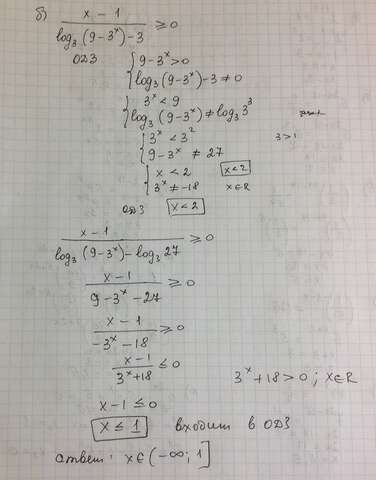 б) (x - 1)/(log₃(9-3ˣ)-3) ≥ 0
ОДЗ { 9-3ˣ>0
log₃(9-3ˣ)-3≠0
{ 3ˣ<9
log₃(9-3ˣ)≠log₃3³
{ 3ˣ<3² 3>1
9-3ˣ ≠ 27
{ x<2 x<2
3ˣ≠-18 x∈R
ОДЗ x<2
(x-1)/(log₃(9-3ˣ)-log₃27) ≥ 0
(x-1)/(9-3ˣ-27) ≥ 0
(x-1)/(-3ˣ-18) ≥ 0
(x-1)/(3ˣ+18) ≤ 0 3ˣ+18>0; x∈R
x-1≤0
x≤1 входит в ОДЗ
ответ: x∈(-∞; 1]